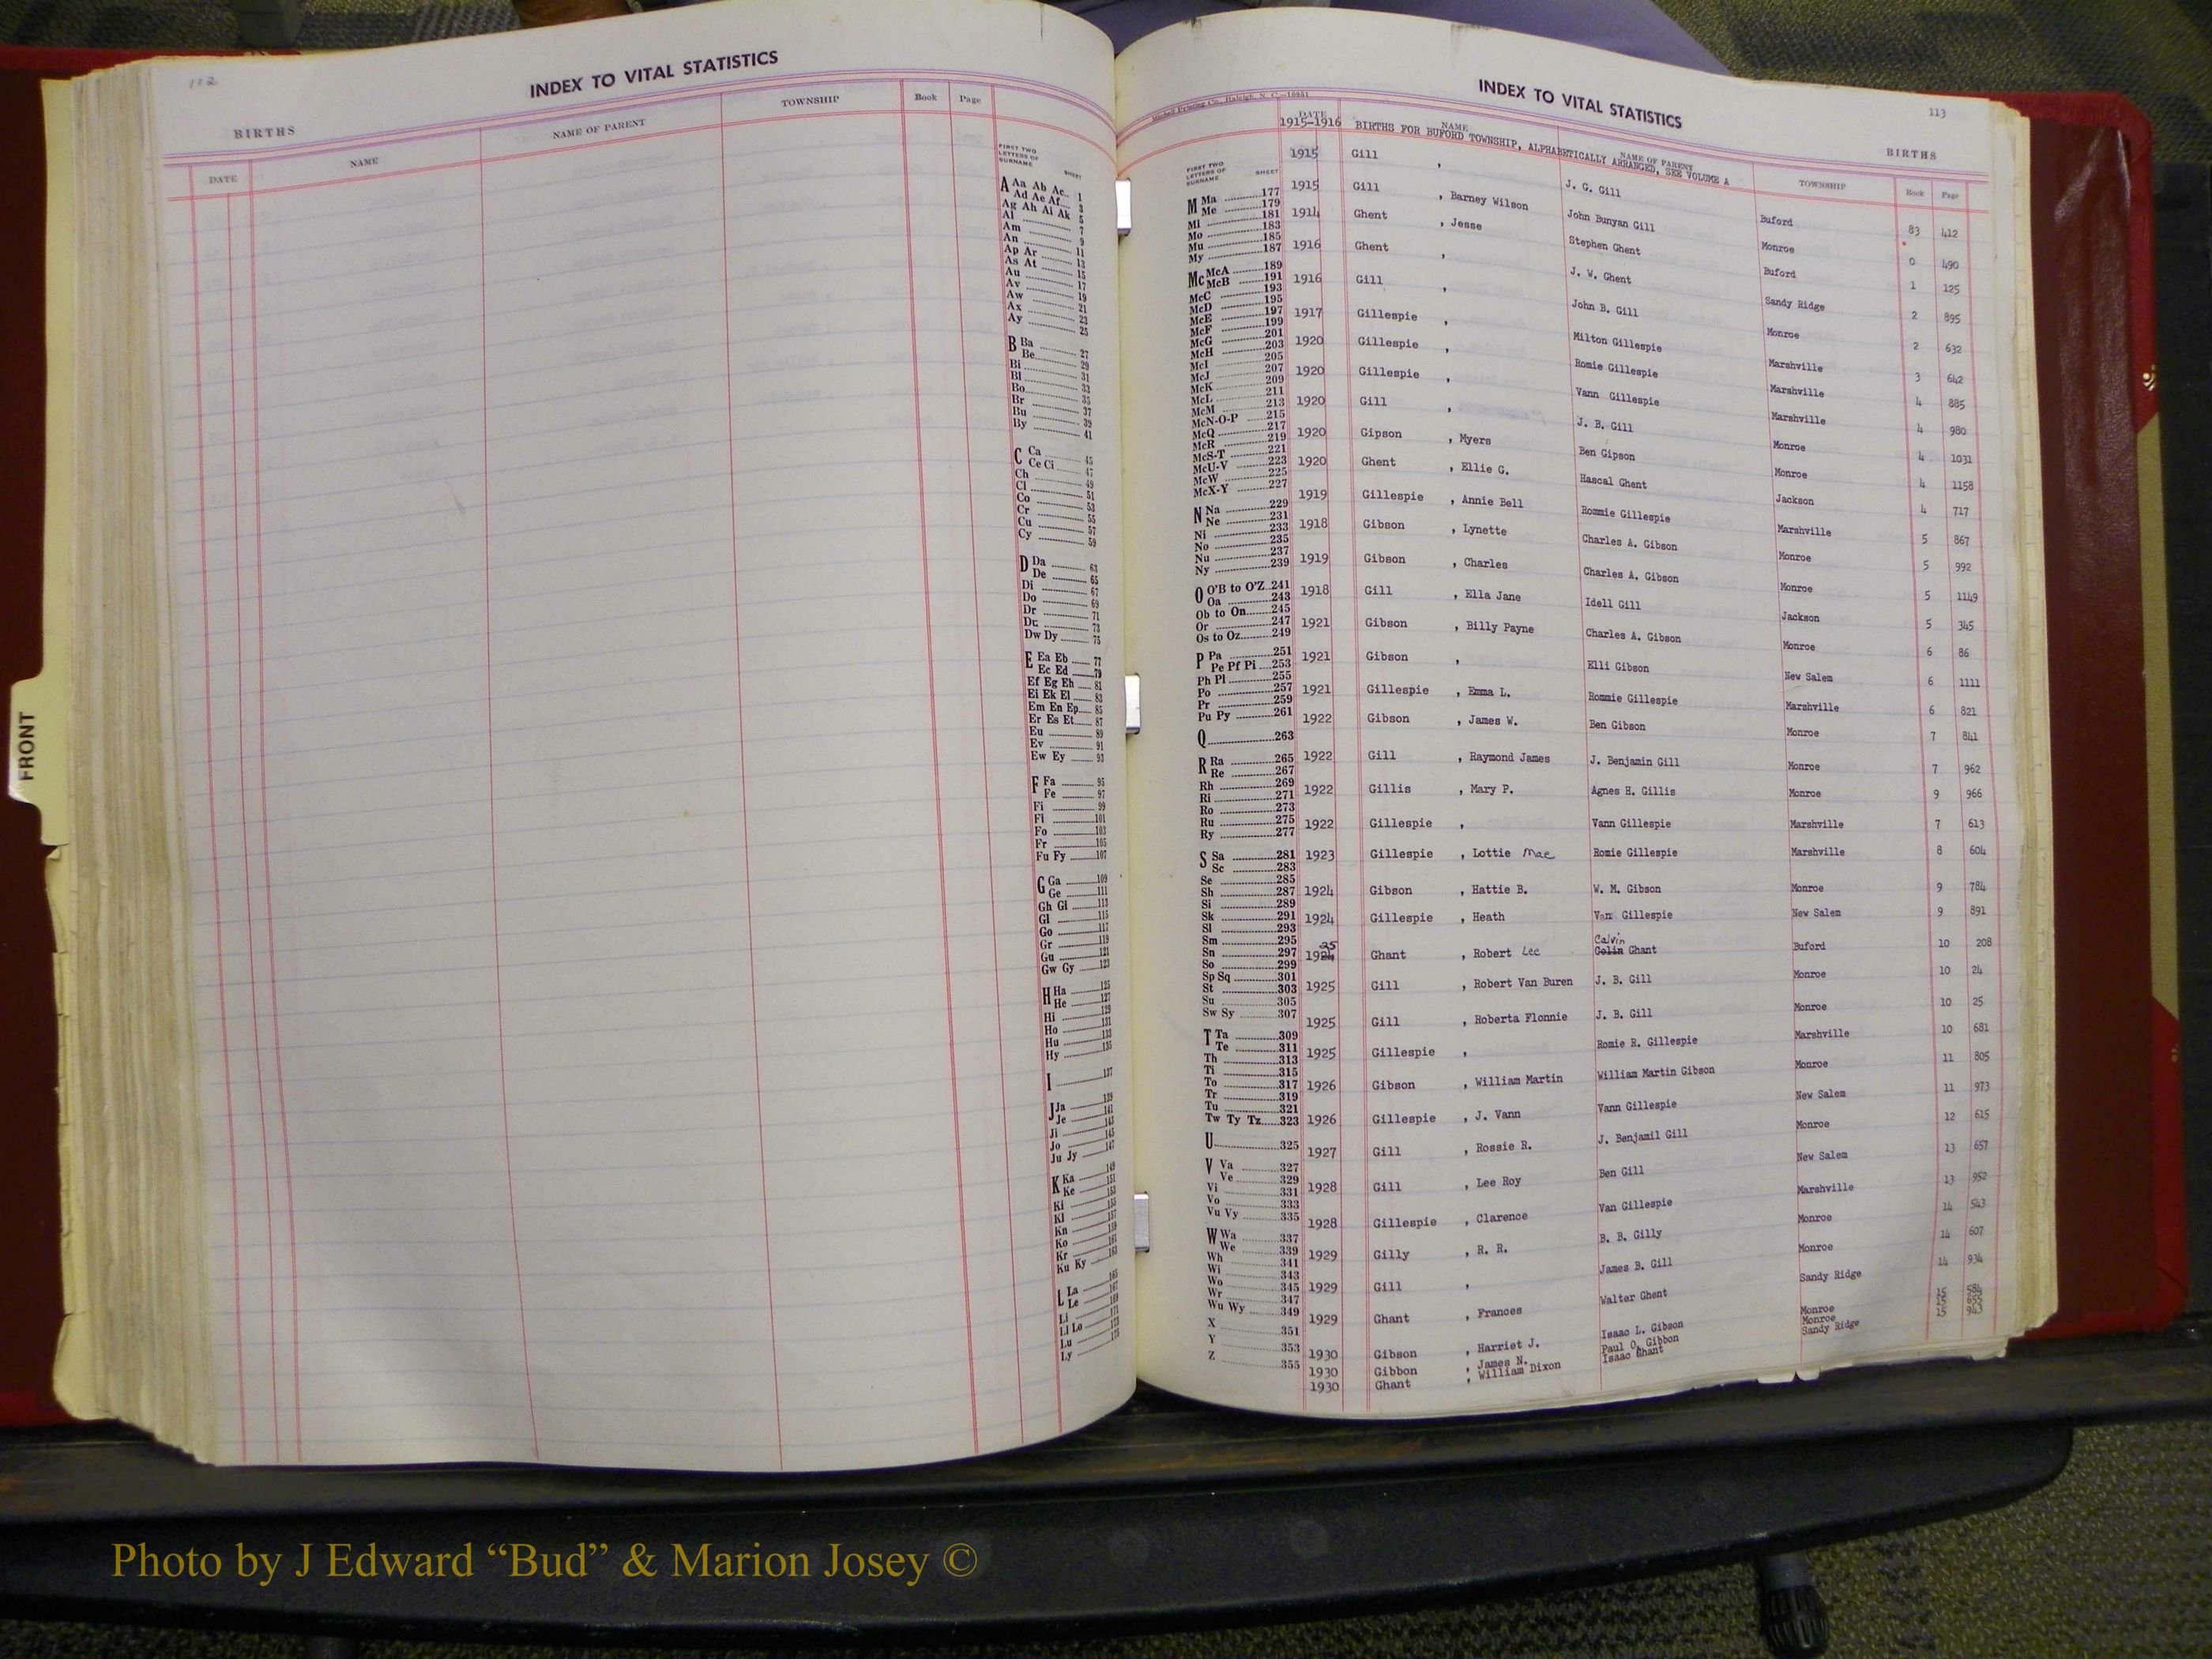 112
INDEX TO VITAL STATISTICS
BIRTHS
DATE NAME NAME OF PARENT TOWNSHIP Book Page
FIRST TWO
LETTERS OF
SURNAME SHEET
A Aa Ab Ac 1
Ad Ae Af 3
Ag Ah Ai Ak 5
Al 7
Am 9
An 11
Ap Ar 13
As At 15
Au 17
Av 19
Aw 21
Ax 23
Ay 25
B Ba 27
Be 29
Bi 31
Bl 33
Bo 35
Br 37
Bu 39
By 41
C Ca 45
Ce Ci 47
Ch 49
Cl 51
Co 53
Cr 55
Cu 57
Cy 59
D Da 63
De 65
Di 67
Do 69
Dr 71
Du 73
Dw Dy 75
E Ea Eb 77
Ec Ed 79
Ef Eg Eh 81
Ei Ek El 83
Em En Ep 85
Er Es Et 87
Eu 89
Ev 91
Ew Ey 93
F Fa 95
Fe 97
Fi 99
Fl 101
Fo 103
Fr 105
Fu Fy 107
G Ga 109
Ge 111
Gh Gi 113
Gl 115
Go 117
Gr 119
Gu 121
Gw Gy 123
H Ha 125
He 127
Hi 129
Ho 131
Hu 133
Hy 135
I 137
J Ja 139
Je 141
Ji 143
Jo 145
Ju Jy 147
K Ka 149
Ke 151
Ki 153
Kl 155
Kn 157
Ko 159
Kr 161
Ku Ky 163
L La 165
Le 167
Li 169
Ll Lo 171
Lu 173
Ly 175
FRONT
Mitchell Printing Co., Raleigh, N. C.—16681
INDEX TO VITAL STATISTICS
113
BIRTHS
DATE NAME NAME OF PARENT TOWNSHIP Book Page
1915-1916 BIRTHS FOR BUFORD TOWNSHIP, ALPHABETICALLY ARRANGED, SEE VOLUME A
FIRST TWO
LETTERS OF
SURNAME SHEET
M Ma 177
Me 179
Mi 181
Mo 183
Mu 185
My 187
Mc McA 189
McB 191
McC 193
McD 195
McE 197
McF 199
McG 201
McH 203
McI 205
McJ 207
McK 209
McL 211
McM 213
McN-O-P 215
McQ 217
McR 219
McS-T 221
McU-V 223
McW 225
McX-Y 227
N Na 229
Ne 231
Ni 233
No 235
Nu 237
Ny 239
O O'B to O'Z 241
Oa 243
Ob to On 245
Or 247
Os to Oz 249
P Pa 251
Pe Pf Pi 253
Ph Pl 255
Po 257
Pr 259
Pu Py 261
Q 263
R Ra 265
Re 267
Rh 269
Ri 271
Ro 273
Ru 275
Ry 277
S Sa 281
Sc 283
Se 285
Sh 287
Si 289
Sk 291
Sl 293
Sm 295
Sn 297
So 299
Sp Sq 301
St 303
Su 305
Sw Sy 307
T Ta 309
Te 311
Th 313
Ti 315
To 317
Tr 319
Tu 321
Tw Ty Tz 323
U 325
V Va 327
Ve 329
Vi 331
Vo 333
Vu Vy 335
W Wa 337
We 339
Wh 341
Wi 343
Wo 345
Wr 347
Wu Wy 349
X 351
Y 353
Z 355
1915 Gill , J. G. Gill Buford 83 412
1915 Gill , Barney Wilson John Bunyan Gill Monroe 0 490
1914 Ghent , Jesse Stephen Ghent Buford 1 125
1916 Ghent , J. W. Ghent Sandy Ridge 2 895
1916 Gill , John B. Gill Monroe 2 632
1917 Gillespie , Milton Gillespie Marshville 3 642
1920 Gillespie , Romie Gillespie Marshville 4 885
1920 Gillespie , Vann Gillespie Marshville 4 980
1920 Gill , J. B. Gill Monroe 4 1031
1920 Gipson , Myers Ben Gipson Monroe 4 1158
1920 Ghent , Ellie G. Hascal Ghent Jackson 4 717
1919 Gillespie , Annie Bell Rommie Gillespie Marshville 5 867
1918 Gibson , Lynette Charles A. Gibson Monroe 5 992
1919 Gibson , Charles Charles A. Gibson Monroe 5 1149
1918 Gill , Ella Jane Idell Gill Jackson 5 345
1921 Gibson , Billy Payne Charles A. Gibson Monroe 6 86
1921 Gibson , Elli Gibson New Salem 6 1111
1921 Gillespie , Emma L. Rommie Gillespie Marshville 6 821
1922 Gibson , James W. Ben Gibson Monroe 7 841
1922 Gill , Raymond James J. Benjamin Gill Monroe 7 962
1922 Gillis , Mary P. Agnes H. Gillis Monroe 9 966
1922 Gillespie , Vann Gillespie Marshville 7 613
1923 Gillespie , Lottie Mae Romie Gillespie Marshville 8 604
1924 Gibson , Hattie B. W. M. Gibson Monroe 9 784
1924 Gillespie , Heath Van Gillespie New Salem 9 891
25 Calvin
1924 Ghant , Robert Lee Colin Ghant Buford 10 208
1925 Gill , Robert Van Buren J. B. Gill Monroe 10 24
1925 Gill , Roberta Flonnie J. B. Gill Monroe 10 25
1925 Gillespie , Romie R. Gillespie Marshville 10 681
1926 Gibson , William Martin William Martin Gibson Monroe 11 805
1926 Gillespie , J. Vann Vann Gillespie New Salem 11 973
1927 Gill , Rossie R. J. Benjamil Gill Monroe 12 615
1928 Gill , Lee Roy Ben Gill New Salem 13 657
1928 Gillespie , Clarence Van Gillespie Marshville 13 952
1929 Gilly , R. R. B. B. Gilly Monroe 14 543
1929 Gill , James B. Gill Monroe 14 607
1929 Ghant , Frances Walter Ghent Sandy Ridge 14 934
1930 Gibson , Harriet J. Isaac L. Gibson Monroe 15 584
1930 Gibbon , James N. Paul O. Gibbon Monroe 15 655
1930 Ghant , William Dixon Isaac Ghant Sandy Ridge 15 943
Photo by J Edward “Bud” & Marion Josey ©